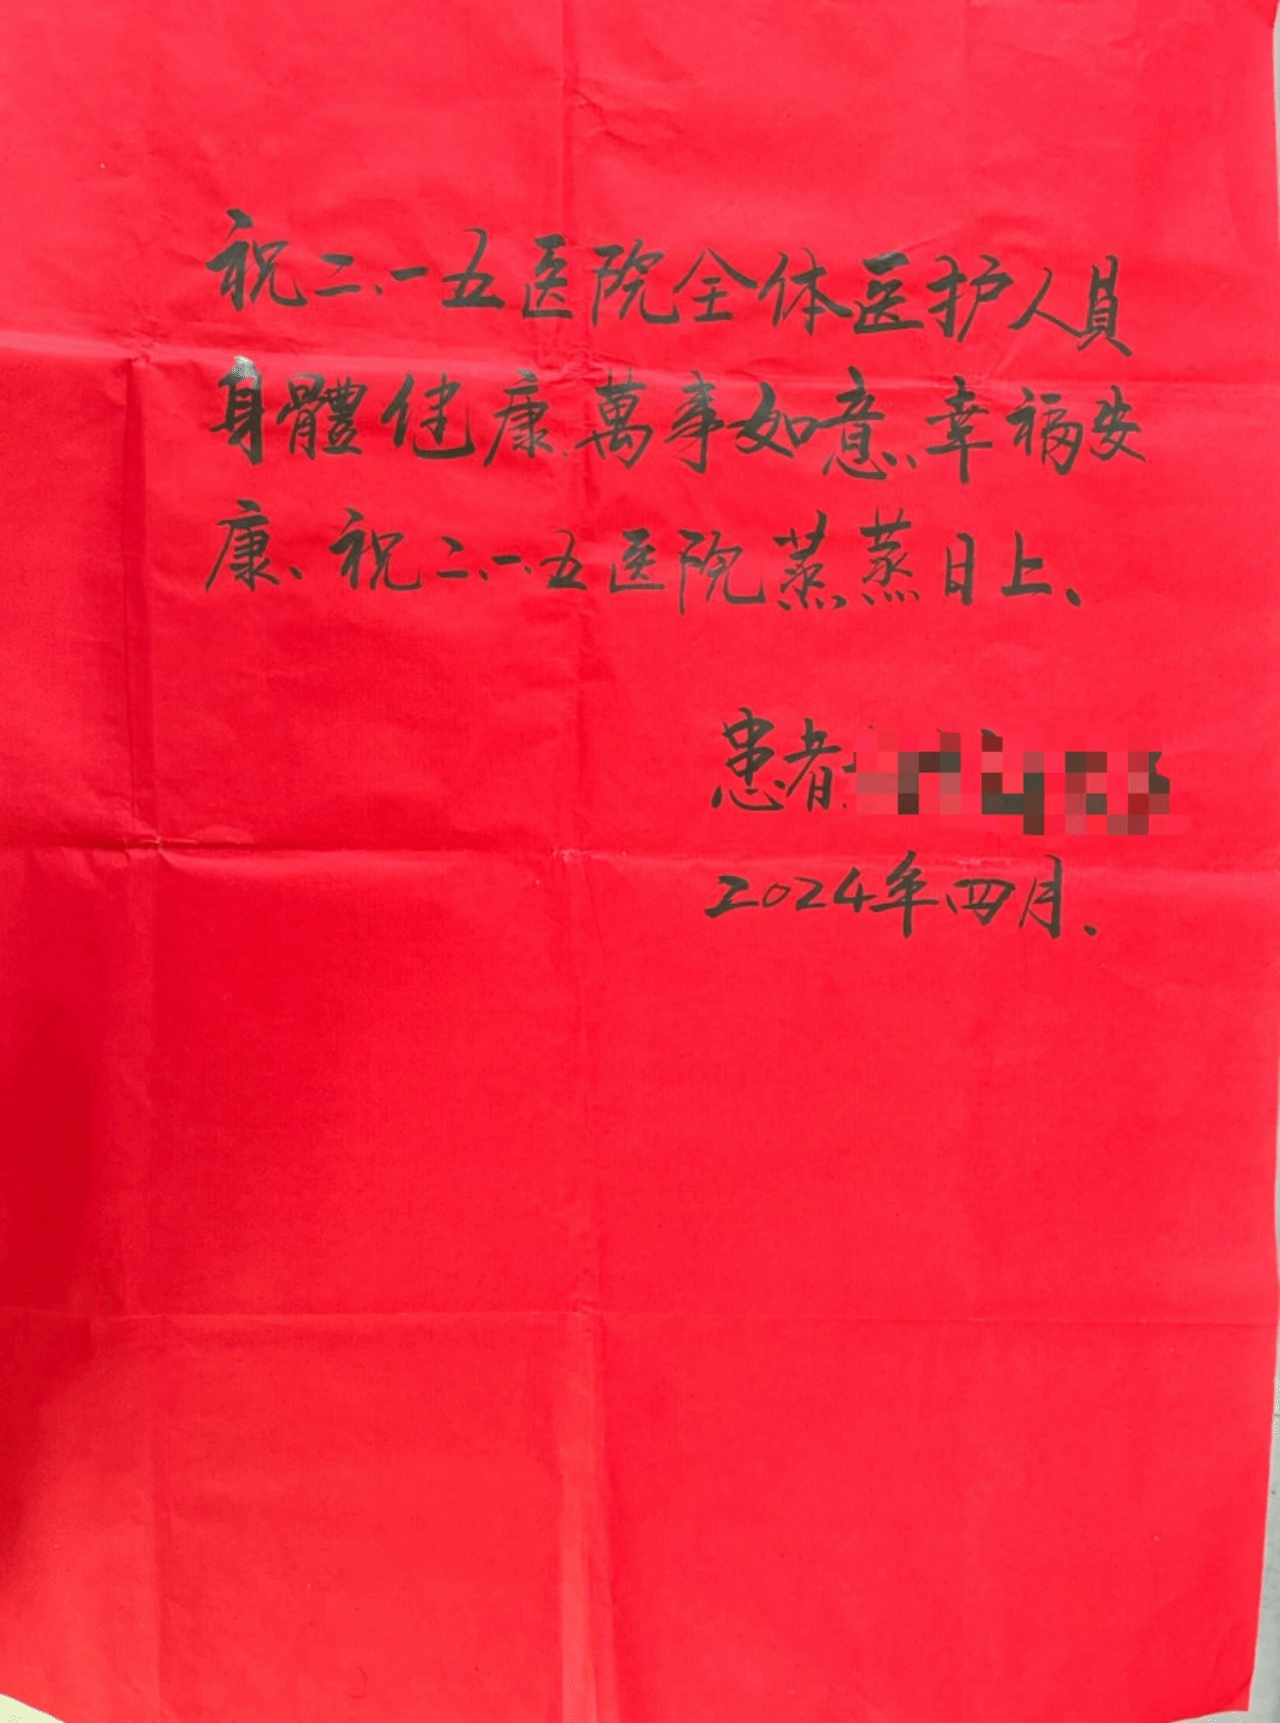 祝二、一五医院全体医护人員
身體健康、萬事如意、幸福安
康、祝二、一、五医院蒸蒸日上、
患者
2024年四月、